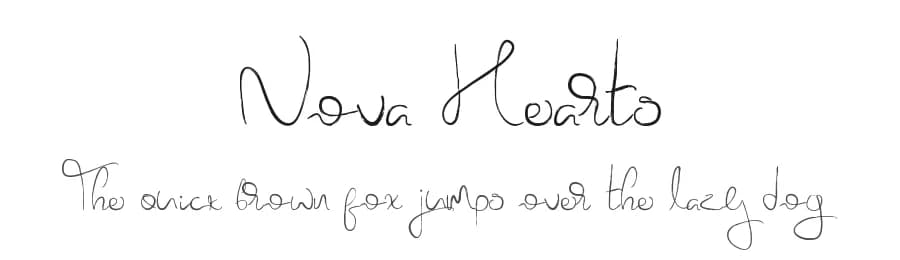 Nova Hearts
The quick brown fox jumps over the lazy dog